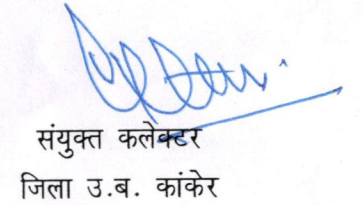 संयुक्त कलेक्टर
जिला उ.ब. कांकेर